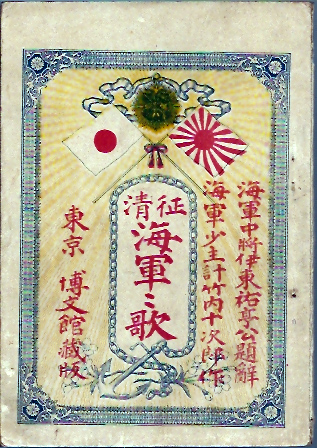 海軍中將伊東祐亨公題辭
海軍少主計竹内十次郎作
征清
海軍々歌
東京 博文館藏版